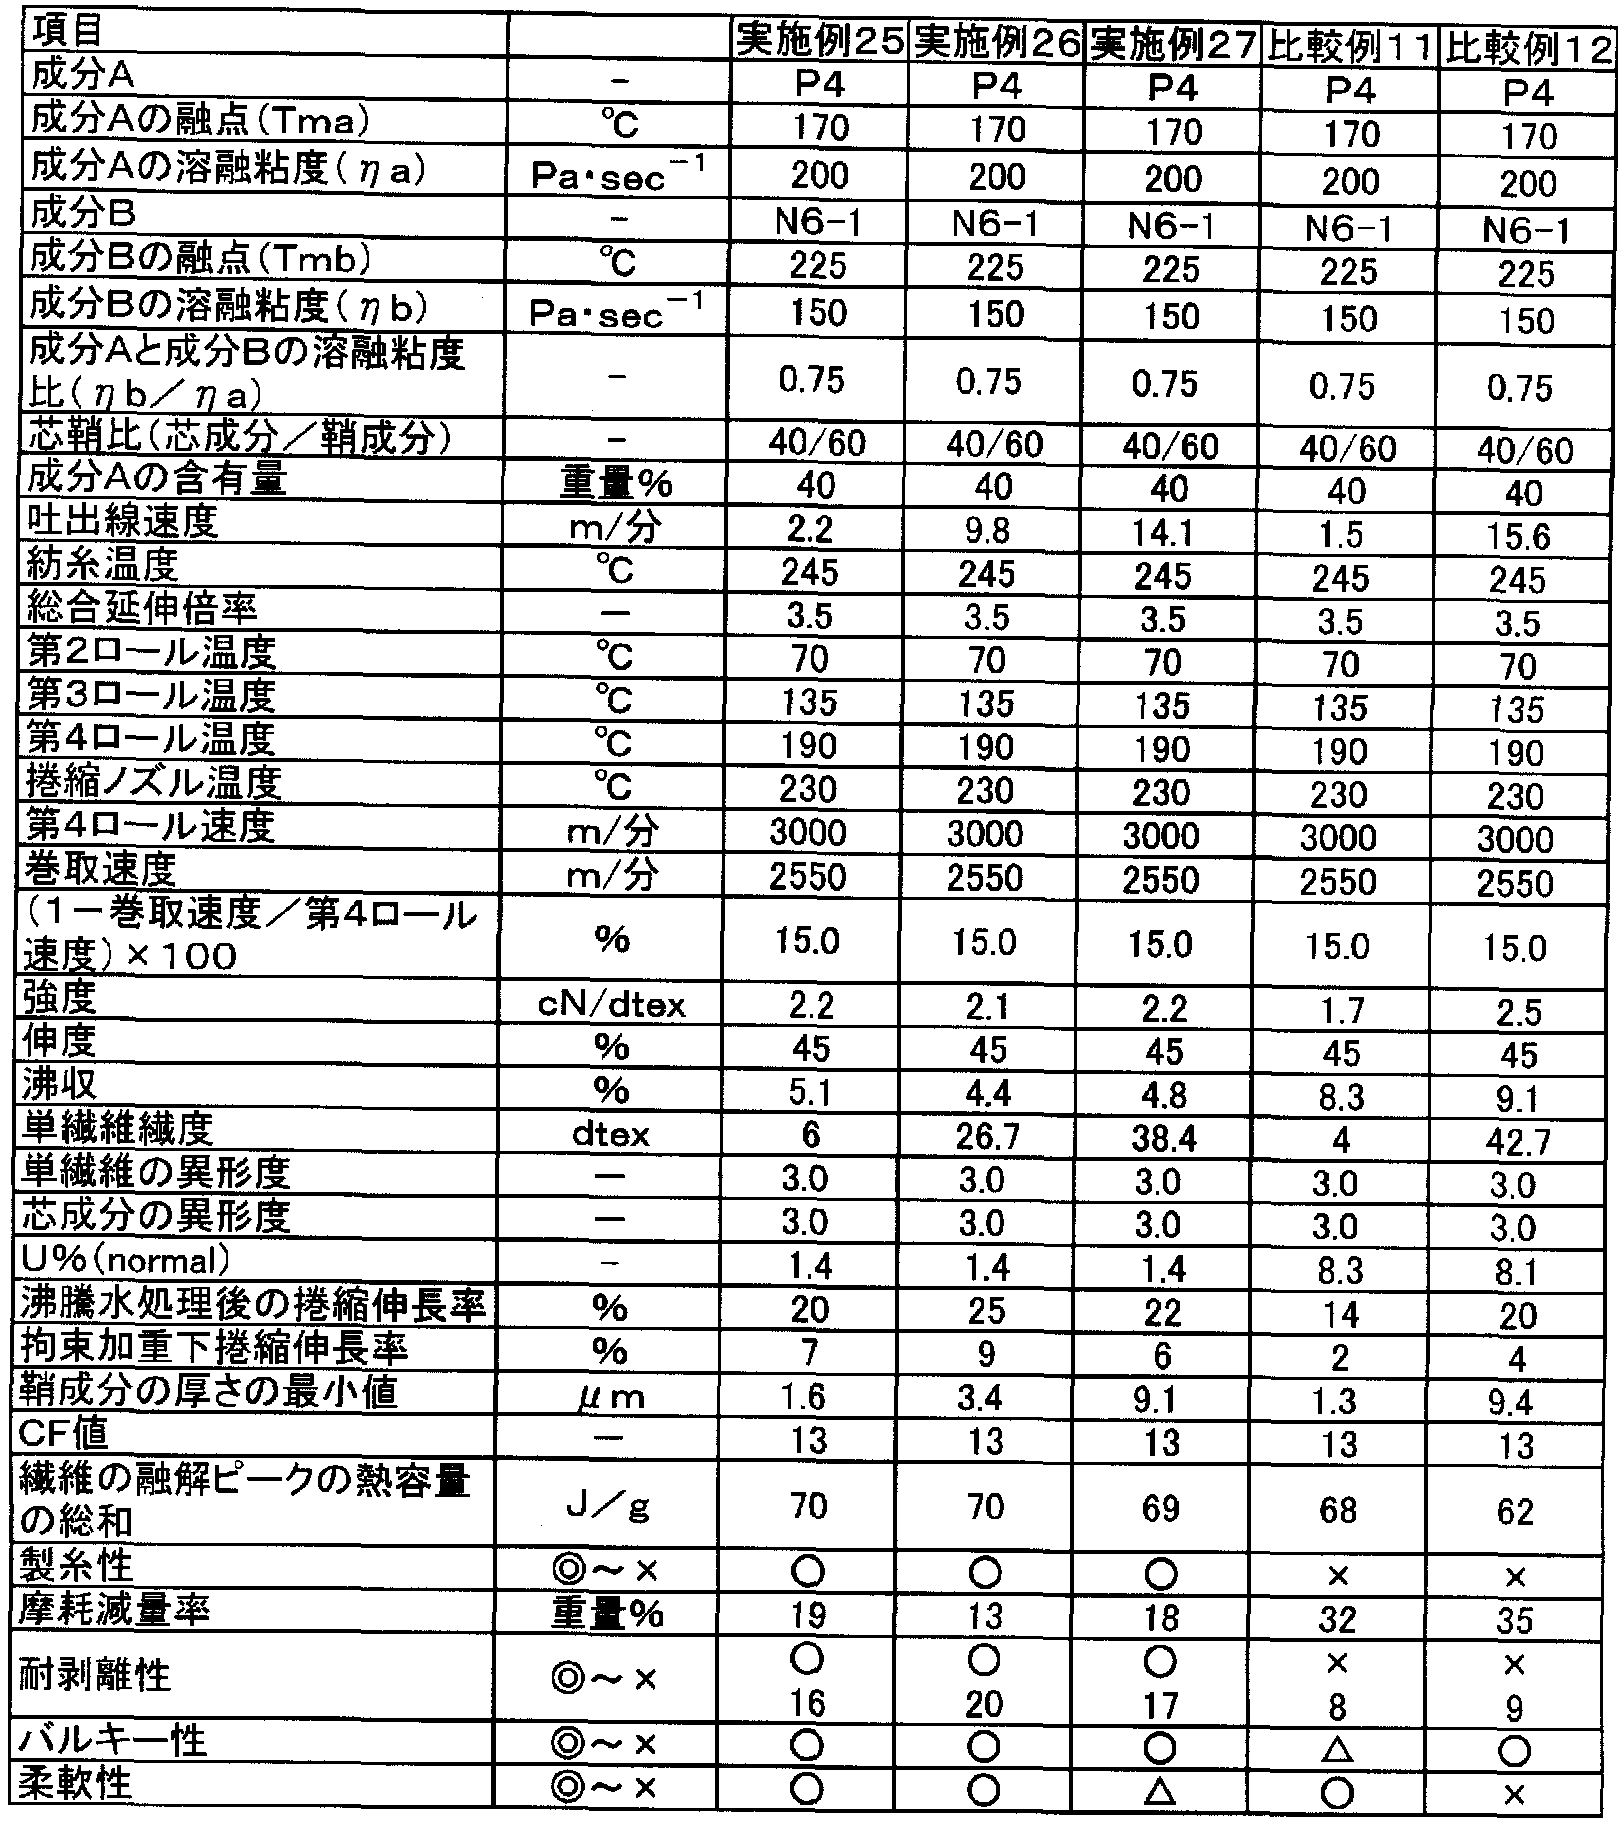 項目 実施例25 実施例26 実施例27 比較例11 比較例12
成分A - P4 P4 P4 P4 P4
成分Aの融点(Tma) ℃ 170 170 170 170 170
成分Aの溶融粘度(ηa) Pa・sec⁻¹ 200 200 200 200 200
成分B - N6-1 N6-1 N6-1 N6-1 N6-1
成分Bの融点(Tmb) ℃ 225 225 225 225 225
成分Bの溶融粘度(ηb) Pa・sec⁻¹ 150 150 150 150 150
成分Aと成分Bの溶融粘度
比(ηb／ηa) - 0.75 0.75 0.75 0.75 0.75
芯鞘比(芯成分／鞘成分) - 40/60 40/60 40/60 40/60 40/60
成分Aの含有量 重量% 40 40 40 40 40
吐出線速度 m/分 2.2 9.8 14.1 1.5 15.6
紡糸温度 ℃ 245 245 245 245 245
総合延伸倍率 ー 3.5 3.5 3.5 3.5 3.5
第2ロール温度 ℃ 70 70 70 70 70
第3ロール温度 ℃ 135 135 135 135 135
第4ロール温度 ℃ 190 190 190 190 190
捲縮ノズル温度 ℃ 230 230 230 230 230
第4ロール速度 m/分 3000 3000 3000 3000 3000
巻取速度 m/分 2550 2550 2550 2550 2550
(1－巻取速度／第4ロール
速度)×100 % 15.0 15.0 15.0 15.0 15.0
強度 cN/dtex 2.2 2.1 2.2 1.7 2.5
伸度 % 45 45 45 45 45
沸収 % 5.1 4.4 4.8 8.3 9.1
単繊維繊度 dtex 6 26.7 38.4 4 42.7
単繊維の異形度 ー 3.0 3.0 3.0 3.0 3.0
芯成分の異形度 ー 3.0 3.0 3.0 3.0 3.0
U%(normal) - 1.4 1.4 1.4 8.3 8.1
沸騰水処理後の捲縮伸長率 % 20 25 22 14 20
拘束加重下捲縮伸長率 % 7 9 6 2 4
鞘成分の厚さの最小値 μm 1.6 3.4 9.1 1.3 9.4
CF値 ー 13 13 13 13 13
繊維の融解ピークの熱容量
の総和 J／g 70 70 69 68 62
製糸性 ◎～× ○ ○ ○ × ×
摩耗減量率 重量% 19 13 18 32 35
耐剥離性 ◎～× ○ ○ ○ × ×
16 20 17 8 9
バルキー性 ◎～× ○ ○ ○ △ ○
柔軟性 ◎～× ○ ○ △ ○ ×